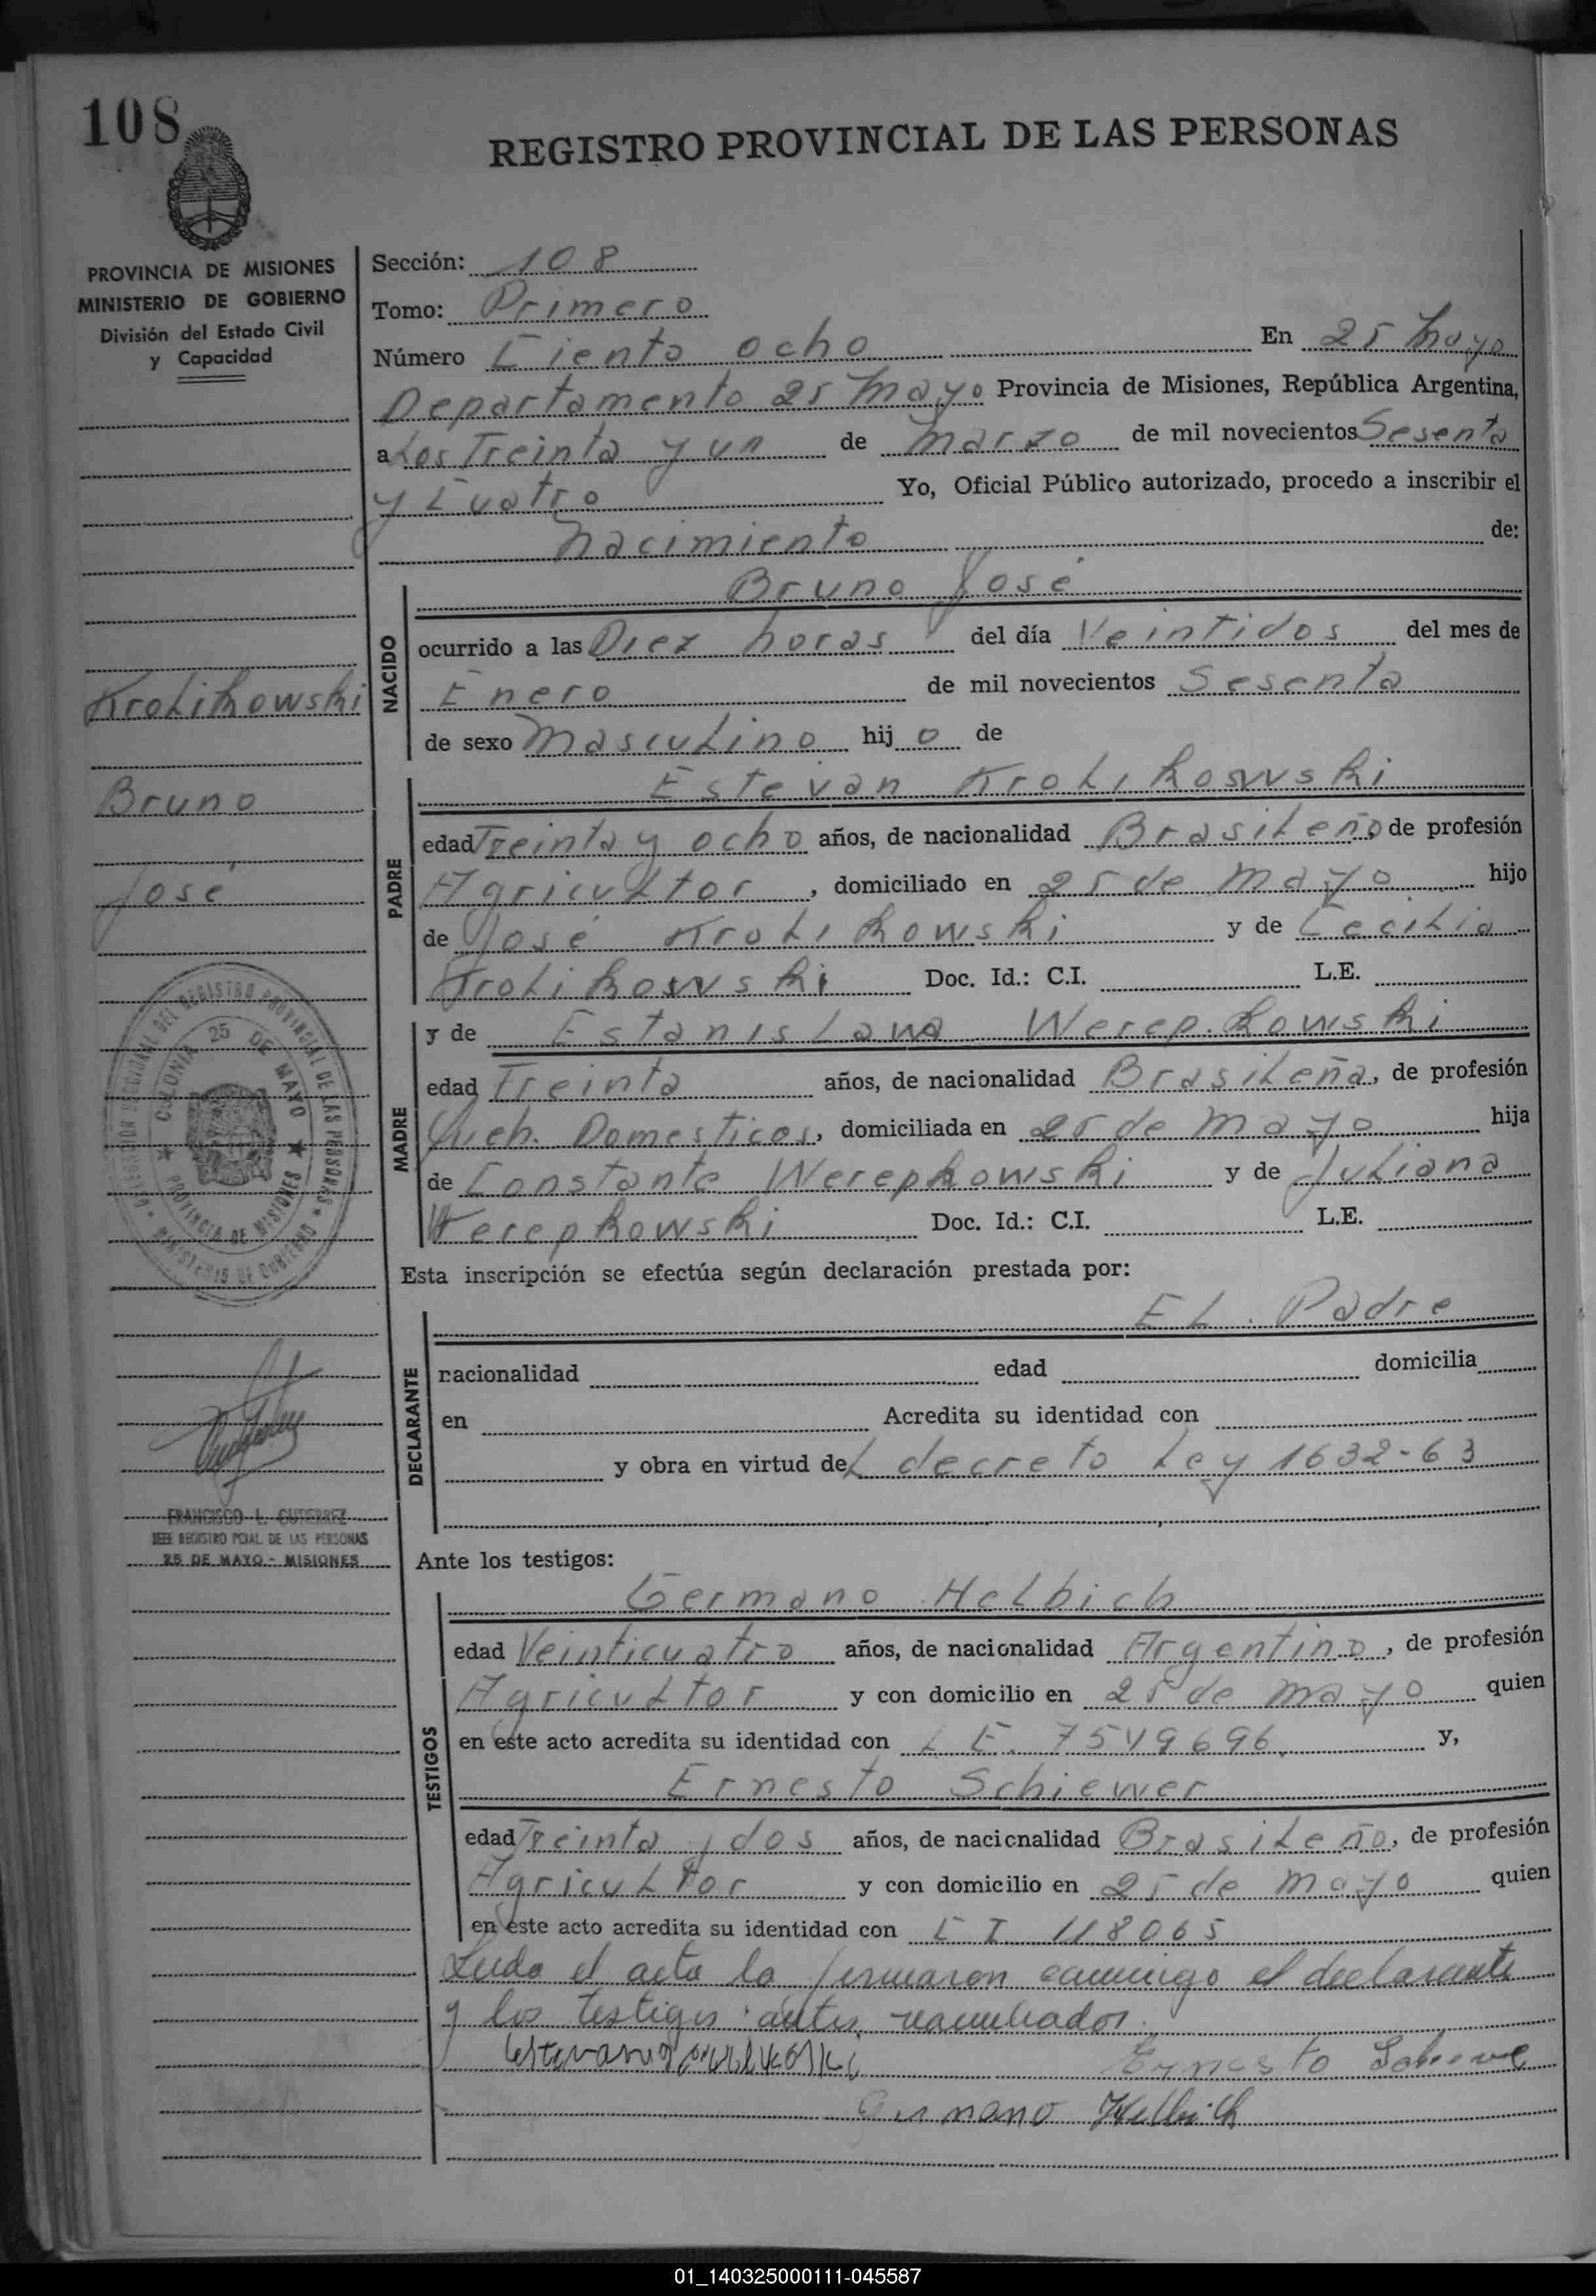 108
REGISTRO PROVINCIAL DE LAS PERSONAS
PROVINCIA DE MISIONES
MINISTERIO DE GOBIERNO
División del Estado Civil
y Capacidad
Sección: 108
Tomo: Primero
Número Ciento ocho En 25 Mayo
Departamento 25 Mayo Provincia de Misiones, República Argentina,
a Los Treinta y un de Marzo de mil novecientos Sesenta
y Cuatro Yo, Oficial Público autorizado, procedo a inscribir el
Nacimiento de:
Krolikowski
Bruno
José
NACIDO
Bruno José
ocurrido a las Diez horas del día Veintidos del mes de
Enero de mil novecientos Sesenta
de sexo Masculino hijo de
PADRE
Estevan Krolikowski
edad Treinta y ocho años, de nacionalidad Brasileño, de profesión
Agricultor, domiciliado en 25 de Mayo hijo
de José Krolikowski y de Cecilia
Krolikowski Doc. Id.: C.I. L.E.
MADRE
y de Estanislawa Werepkowski
edad Treinta años, de nacionalidad Brasileña, de profesión
Queh. Domesticos, domiciliada en 25 de Mayo hija
de Constante Werepkowski y de Juliana
Werepkowski Doc. Id.: C.I. L.E.
Esta inscripción se efectúa según declaración prestada por:
DECLARANTE
EL. Padre
nacionalidad edad domicilia
en Acredita su identidad con
y obra en virtud del decreto Ley 1632-63
COLONIA 25 DE MAYO
PROVINCIA DE MISIONES
REGISTRO PROVINCIAL DE LAS PERSONAS
MINISTERIO DE GOBIERNO
FRANCISCO L. GUTIERREZ
JEFE REGISTRO PCIAL. DE LAS PERSONAS
25 DE MAYO - MISIONES
Ante los testigos:
TESTIGOS
Germano Helbich
edad Veinticuatro años, de nacionalidad Argentino, de profesión
Agricultor y con domicilio en 25 de Mayo quien
en este acto acredita su identidad con L E. 7549696. y,
Ernesto Schiewer
edad Treinta y dos años, de nacionalidad Brasileño, de profesión
Agricultor y con domicilio en 25 de Mayo quien
en este acto acredita su identidad con C I 118065
Leido el acta la firmaron conmigo el declarante
y los testigos antes nombrados.
Ernesto
Germano Helbich
01_140325000111-045587